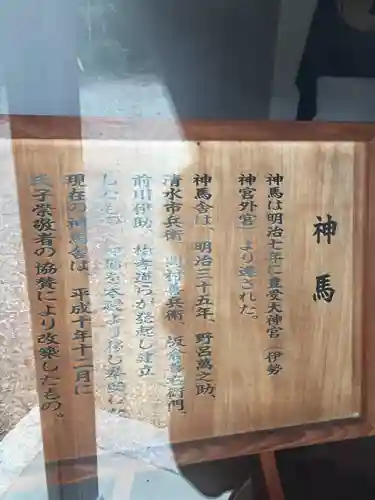 神馬
神馬は明治七年に豊受大神宮（伊勢
神宮外宮）より遷された。
神馬舎は、明治三十五年、野呂萬之助、
清水市兵衛、
前川伊助、らが発起し建立
現在の神馬舎は、平成十年十二月に
氏子崇敬者の協賛により改築したもの。